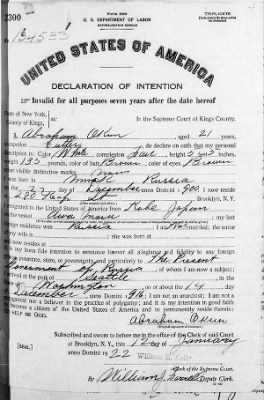 2300
Form 2203
U. S. DEPARTMENT OF LABOR
NATURALIZATION SERVICE
TRIPLICATE
No. 134533
UNITED STATES OF AMERICA
DECLARATION OF INTENTION
Invalid for all purposes seven years after the date hereof
State of New York,
County of Kings, ss: In the Supreme Court of Kings County.
I, Abraham Okun, aged 21 years,
occupation Cutter, do declare on oath that my personal
description is: Color White, complexion, height 5 feet 3 inches,
weight 135 pounds, color of hair Brown, color of eyes Brown
other visible distinctive marks None
Minsk Russia
day of December, anno Domini 1900; I now reside
at St, Brooklyn, N. Y.
to the United States of America from Kobe Japan
on the vessel Awa Maru; my last
foreign residence was Russia. I am not married; the name
of my wife is; she was born at
and now resides at
It is my bona fide intention to renounce forever all allegiance and fidelity to any foreign
prince, potentate, state, or sovereignty, and particularly to The Present
Government of Russia, of whom I am now a subject; I
arrived at the port of Seattle, in the
State of Washington, on or about the 14 day
of December, anno Domini 1916; I am not an anarchist; I am not a
polygamist nor a believer in the practice of polygamy; and it is my intention in good faith
to become a citizen of the United States of America and to permanently reside therein:
SO HELP ME GOD.
Abraham Okun
Subscribed and sworn to before me in the office of the Clerk of said Court
[SEAL] at Brooklyn, N. Y., this 12 day of January
anno Domini 1922
Clerk of the Supreme Court.
By William J., Deputy Clerk.